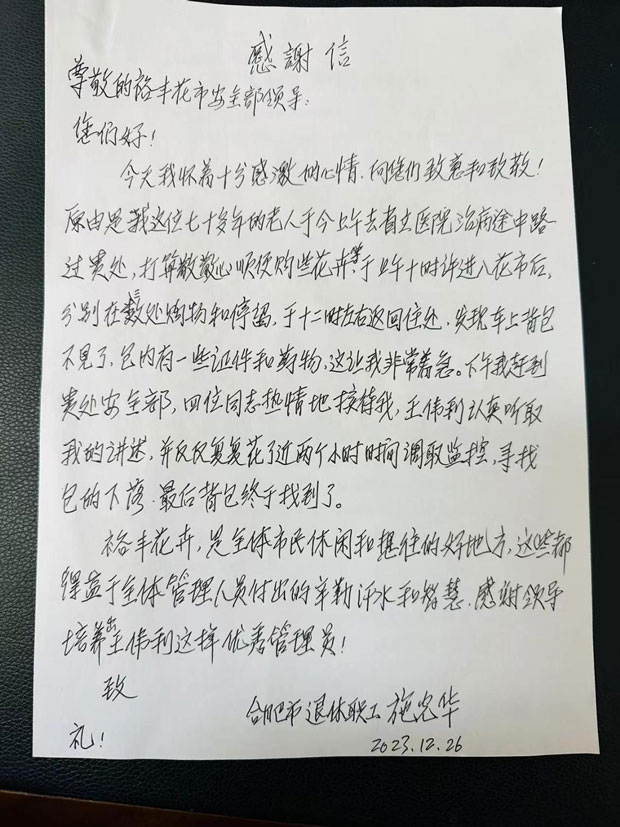 感謝信
尊敬的裕丰花市安全部领导:
您们好!
今天我怀着十分感激的心情,向您们致意和致敬!
原由是我这位七十多岁年的老人于今上午去省立医院治病途中路
过贵处,打算散散心顺便购些花卉等于上午十时许进入花市后,
分别在三数处购物和停留,于十二时左右返回住处,发现车上背包
不见了,包内有一些证件和药物,这让我非常着急。下午我赶到
贵处安全部,四位同志热情地接待我,王伟利认真听取
我的讲述,并反反复复花了近两个小时时间调取监控,寻找
包的下落.最后背包终于找到了。
裕丰花卉,是全体市民休闲和想往的好地方,这些都
得益于全体管理人员付出的辛勤汗水和智慧,感谢领导
培养出王伟利这样优秀管理员!
致
合肥市退休职工施光华
礼!
2023.12.26